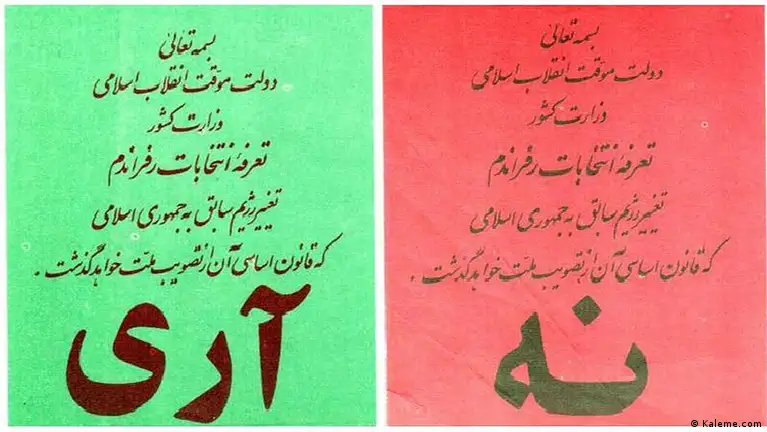 بسمه تعالی
دولت موقت انقلاب اسلامی
وزارت کشور
تعرفهٔ انتخابات رفراندم
تغییر رژیم سابق به جمهوری اسلامی
که قانون اساسی آن از تصویب ملت خواهد گذشت .
آری
بسمه تعالی
دولت موقت انقلاب اسلامی
وزارت کشور
تعرفهٔ انتخابات رفراندم
تغییر رژیم سابق به جمهوری اسلامی
که قانون اساسی آن از تصویب ملت خواهد گذشت .
نه
© Kaleme.com